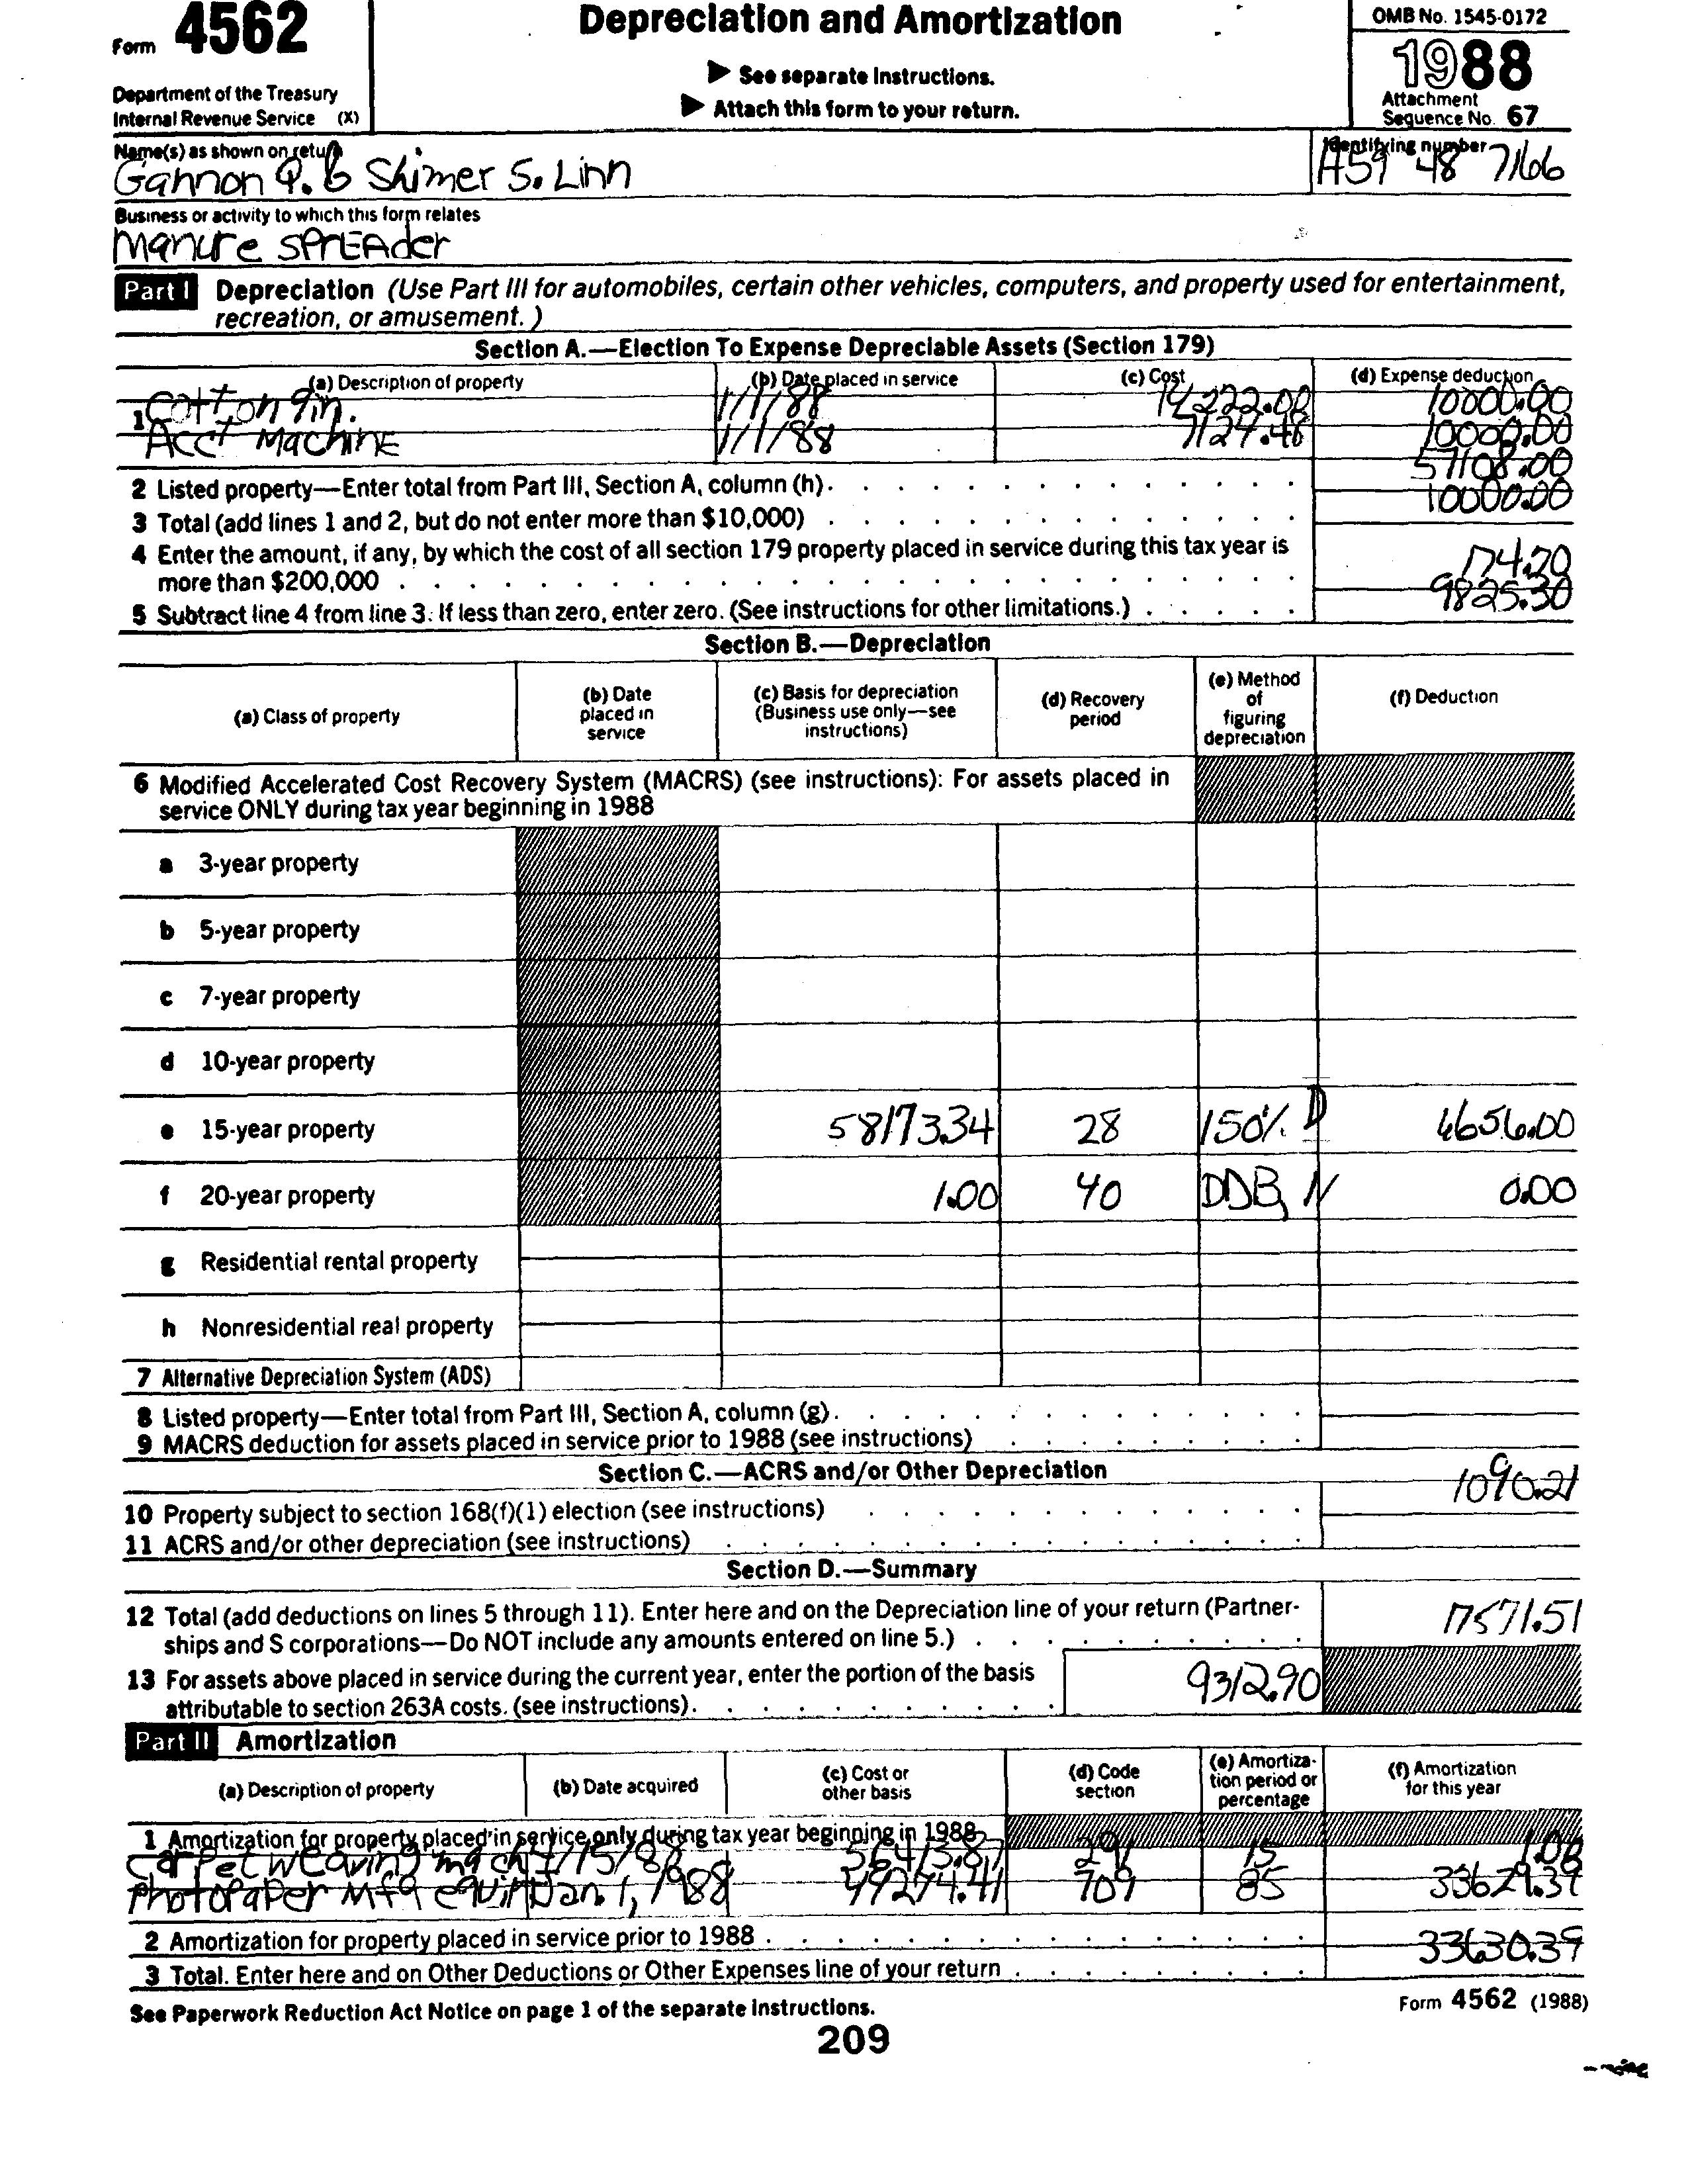 Form 4562
Department of the Treasury
Internal Revenue Service (X)
Depreciation and Amortization
▶ See separate Instructions.
▶ Attach this form to your return.
OMB No. 1545-0172
1988
Attachment
Sequence No. 67
Name(s) as shown on return
Gannon Q. & Shimer S. Linn
Identifying number
459 48 7166
Business or activity to which this form relates
Manure SPrEAder
Part I Depreciation (Use Part III for automobiles, certain other vehicles, computers, and property used for entertainment,
recreation, or amusement.)
Section A.—Election To Expense Depreciable Assets (Section 179)
(a) Description of property (b) Date placed in service (c) Cost (d) Expense deduction
1 Cotton gin. 1/1/88 14222.00 10000.00
Acct Machine 1/1/88 7127.48 10000.00
2 Listed property—Enter total from Part III, Section A, column (h). 57108.00
3 Total (add lines 1 and 2, but do not enter more than $10,000) 10000.00
4 Enter the amount, if any, by which the cost of all section 179 property placed in service during this tax year is
more than $200,000 174.70
5 Subtract line 4 from line 3. If less than zero, enter zero. (See instructions for other limitations.) 9825.30
Section B.—Depreciation
(a) Class of property (b) Date placed in service (c) Basis for depreciation (Business use only—see instructions) (d) Recovery period (e) Method of figuring depreciation (f) Deduction
6 Modified Accelerated Cost Recovery System (MACRS) (see instructions): For assets placed in
service ONLY during tax year beginning in 1988
a 3-year property
b 5-year property
c 7-year property
d 10-year property
e 15-year property 58173.34 28 150% D 6656.00
f 20-year property 1.00 40 DDB, N 0.00
g Residential rental property
h Nonresidential real property
7 Alternative Depreciation System (ADS)
8 Listed property—Enter total from Part III, Section A, column (g).
9 MACRS deduction for assets placed in service prior to 1988 (see instructions)
Section C.—ACRS and/or Other Depreciation
1090.21
10 Property subject to section 168(f)(1) election (see instructions)
11 ACRS and/or other depreciation (see instructions)
Section D.—Summary
12 Total (add deductions on lines 5 through 11). Enter here and on the Depreciation line of your return (Partner-
ships and S corporations—Do NOT include any amounts entered on line 5.) 17571.51
13 For assets above placed in service during the current year, enter the portion of the basis
attributable to section 263A costs. (see instructions). 9312.90
Part II Amortization
(a) Description of property (b) Date acquired (c) Cost or other basis (d) Code section (e) Amortiza-tion period or percentage (f) Amortization for this year
1 Amortization for property placed in service only during tax year beginning in 1988
Carpet weaving mach 7/15/88 56413.87 291 15 1.00
Photopaper Mfg equip Jan. 1, 1988 49274.41 709 85 33629.39
2 Amortization for property placed in service prior to 1988
3 Total. Enter here and on Other Deductions or Other Expenses line of your return 33630.39
See Paperwork Reduction Act Notice on page 1 of the separate Instructions.
Form 4562 (1988)
209